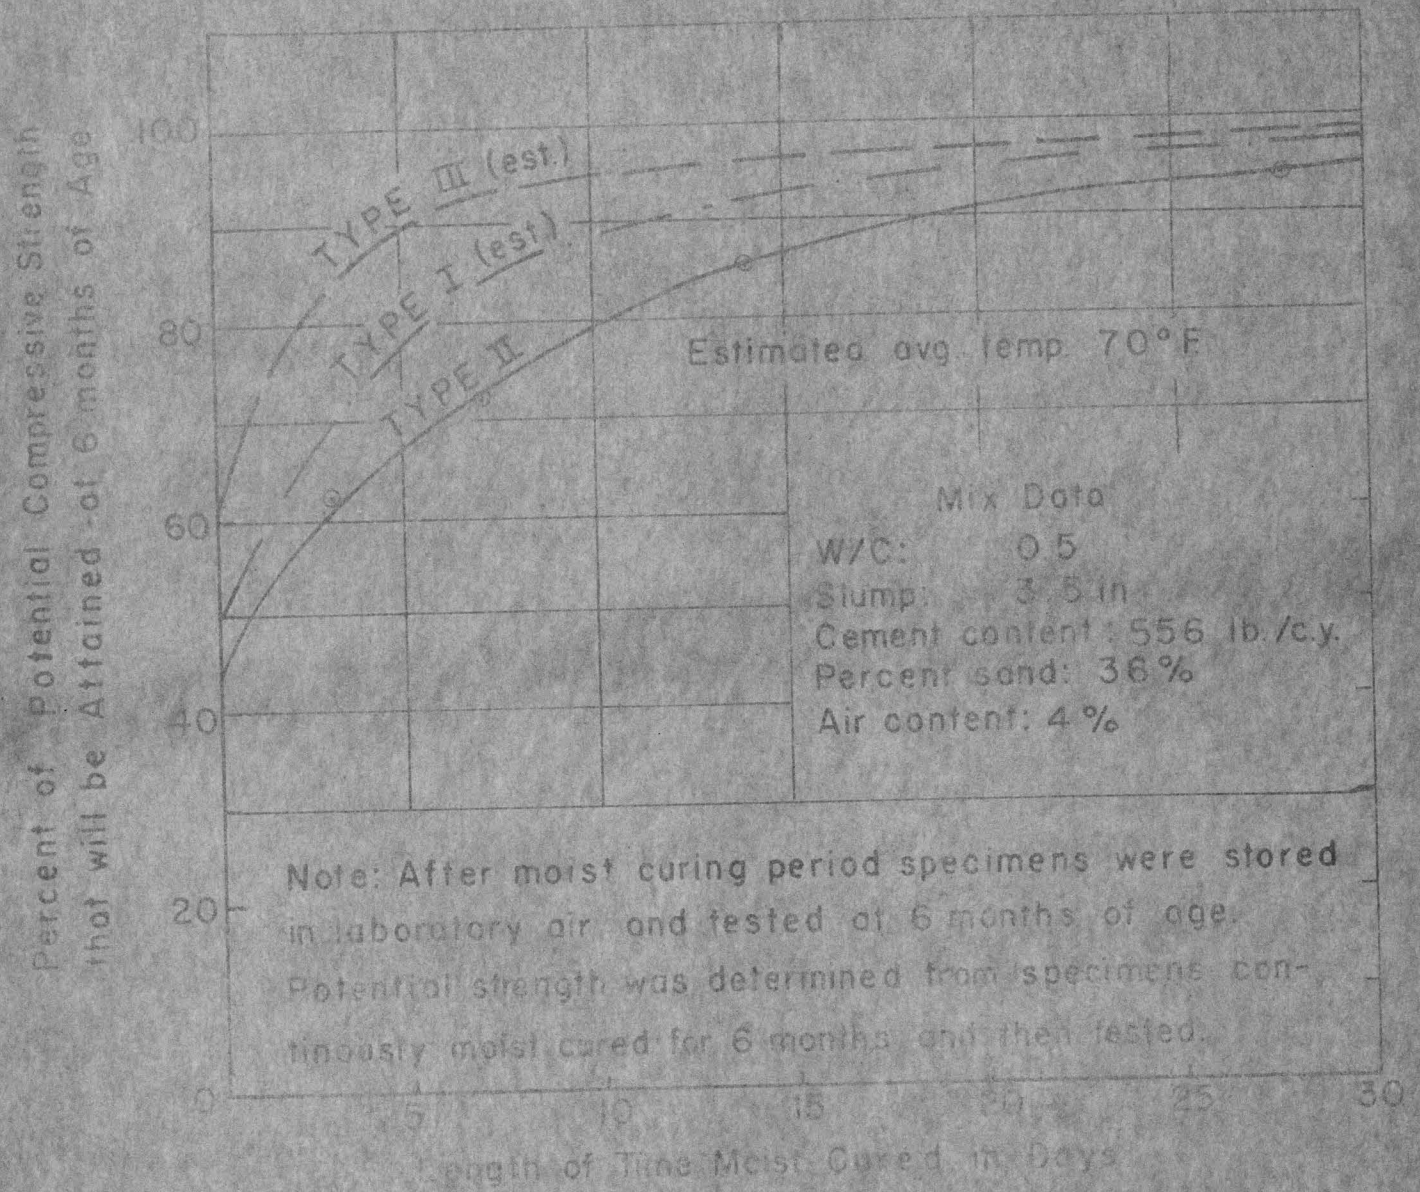 Percent of Potential Compressive Strength
that will be Attained at 6 months of Age
100
80
60
40
20
0
TYPE III (est.)
TYPE I (est.)
TYPE II
Estimated avg. temp. 70° F.
Mix Data
W/C: 0.5
Slump: 3.5 in
Cement content: 556 lb./c.y.
Percent sand: 36%
Air content: 4%
Note: After moist curing period specimens were stored
in laboratory air and tested at 6 months of age.
Potential strength was determined from specimens con-
tinously moist cured for 6 months and then tested.
5 10 15 20 25 30
Length of Time Moist Cured in Days